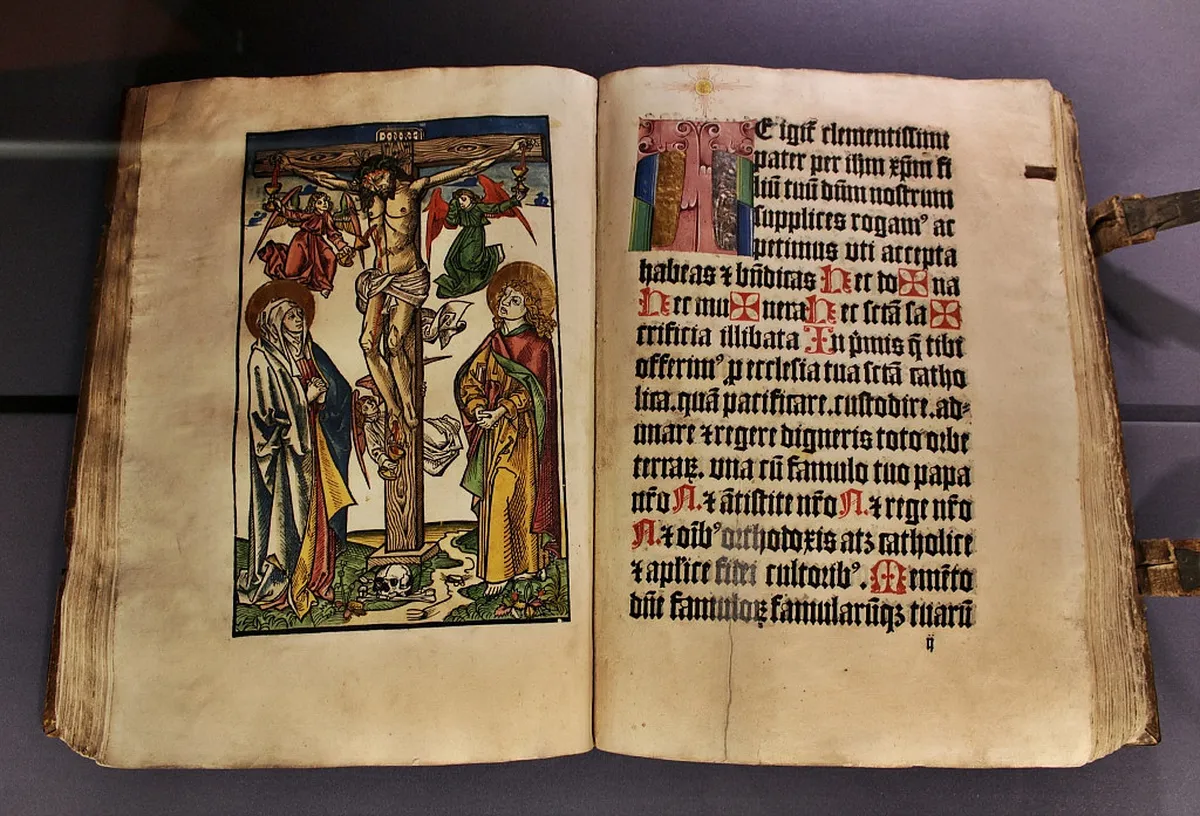 TE igit̃ clementissime
pater per ihm̃ xp̃m fi
liũ tuũ dñm nostrum
supplices rogamꝰ ac
petimus uti accepta
habeas ⁊ bñdicas Hec do✠na
Hec mu✠nera Hec sctã sa✠
crificia illibata In p̃mis q̃ tibi
offerimꝰ ꝓ ecclesia tua sctã catho
lica. quã pacificare. custodire. ad⸗
unare ⁊ regere digneris toto orbe
terraꝝ. una cũ famulo tuo papa
nr̃o N. ⁊ ãtistite nr̃o N. ⁊ rege nr̃o
N. ⁊ oĩbꝰ orthodoxis atꝫ catholice
⁊ apl̃ice fidei cultoribꝰ. Memẽto
dñe famuloꝝ famularũqꝫ tuarũ
ij